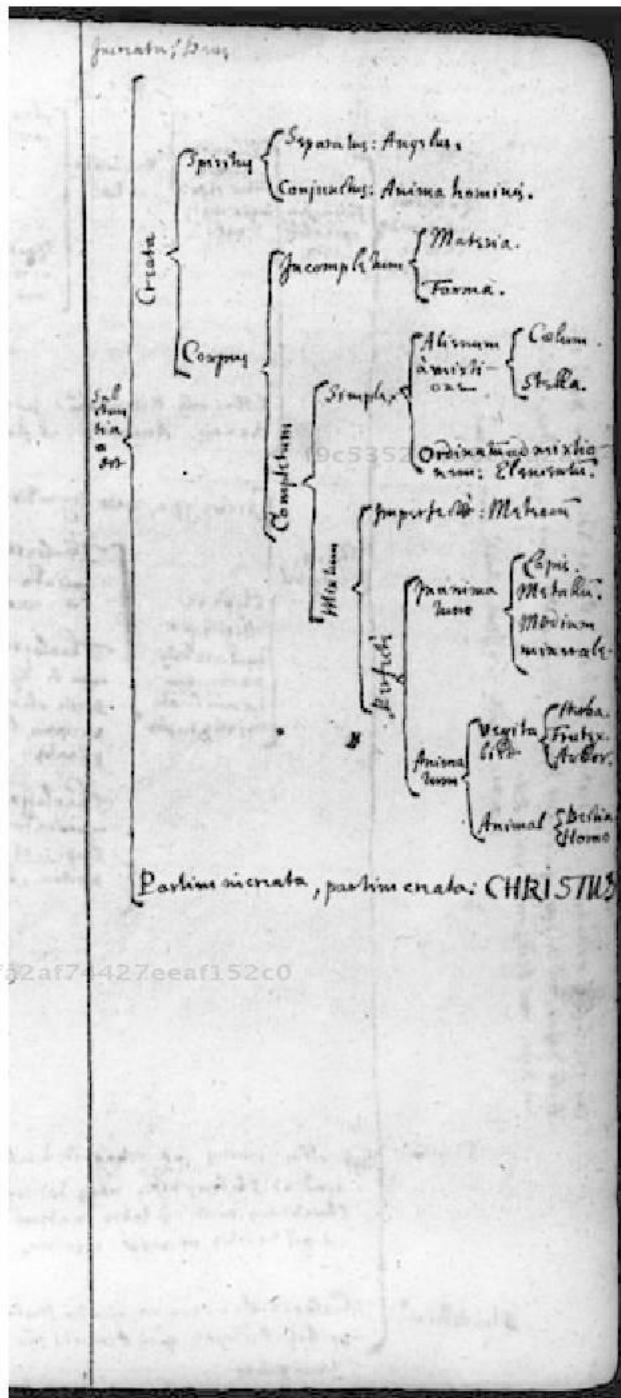 Increata: Deus
Creata
Spiritus
Separatus: Angelus.
Conjunctus: Anima hominis.
Corpus
Incompletum
Materia.
Forma.
Completum
Simplex
Alienum
à misti-
one
Cœlum.
Stella.
Ordinatū ad mixtio
nem: Elementū.
Sub
stan
tia
est
Mixtum
Imperfectè: Meteorū
Perfectè
Inanima
tum
Lapis.
Metallū.
Medium
minerale.
Anima
tum
Vegeta
bile
Herba.
Frutex.
Arbor.
Animal
Bestia
Homo
Partim increata, partim creata: CHRISTUS
f9c5352
fa2af74427eeaf152c0